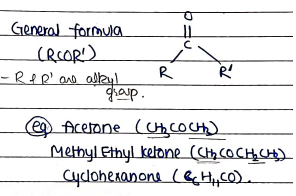 General formula
(RCOR')
O
||
C
R R'
- R & R' are alkyl
group.
(eg) Acetone (CH3COCH3)
Methyl Ethyl ketone (CH3COCH2CH3)
Cyclohexanone (C6H11CO).